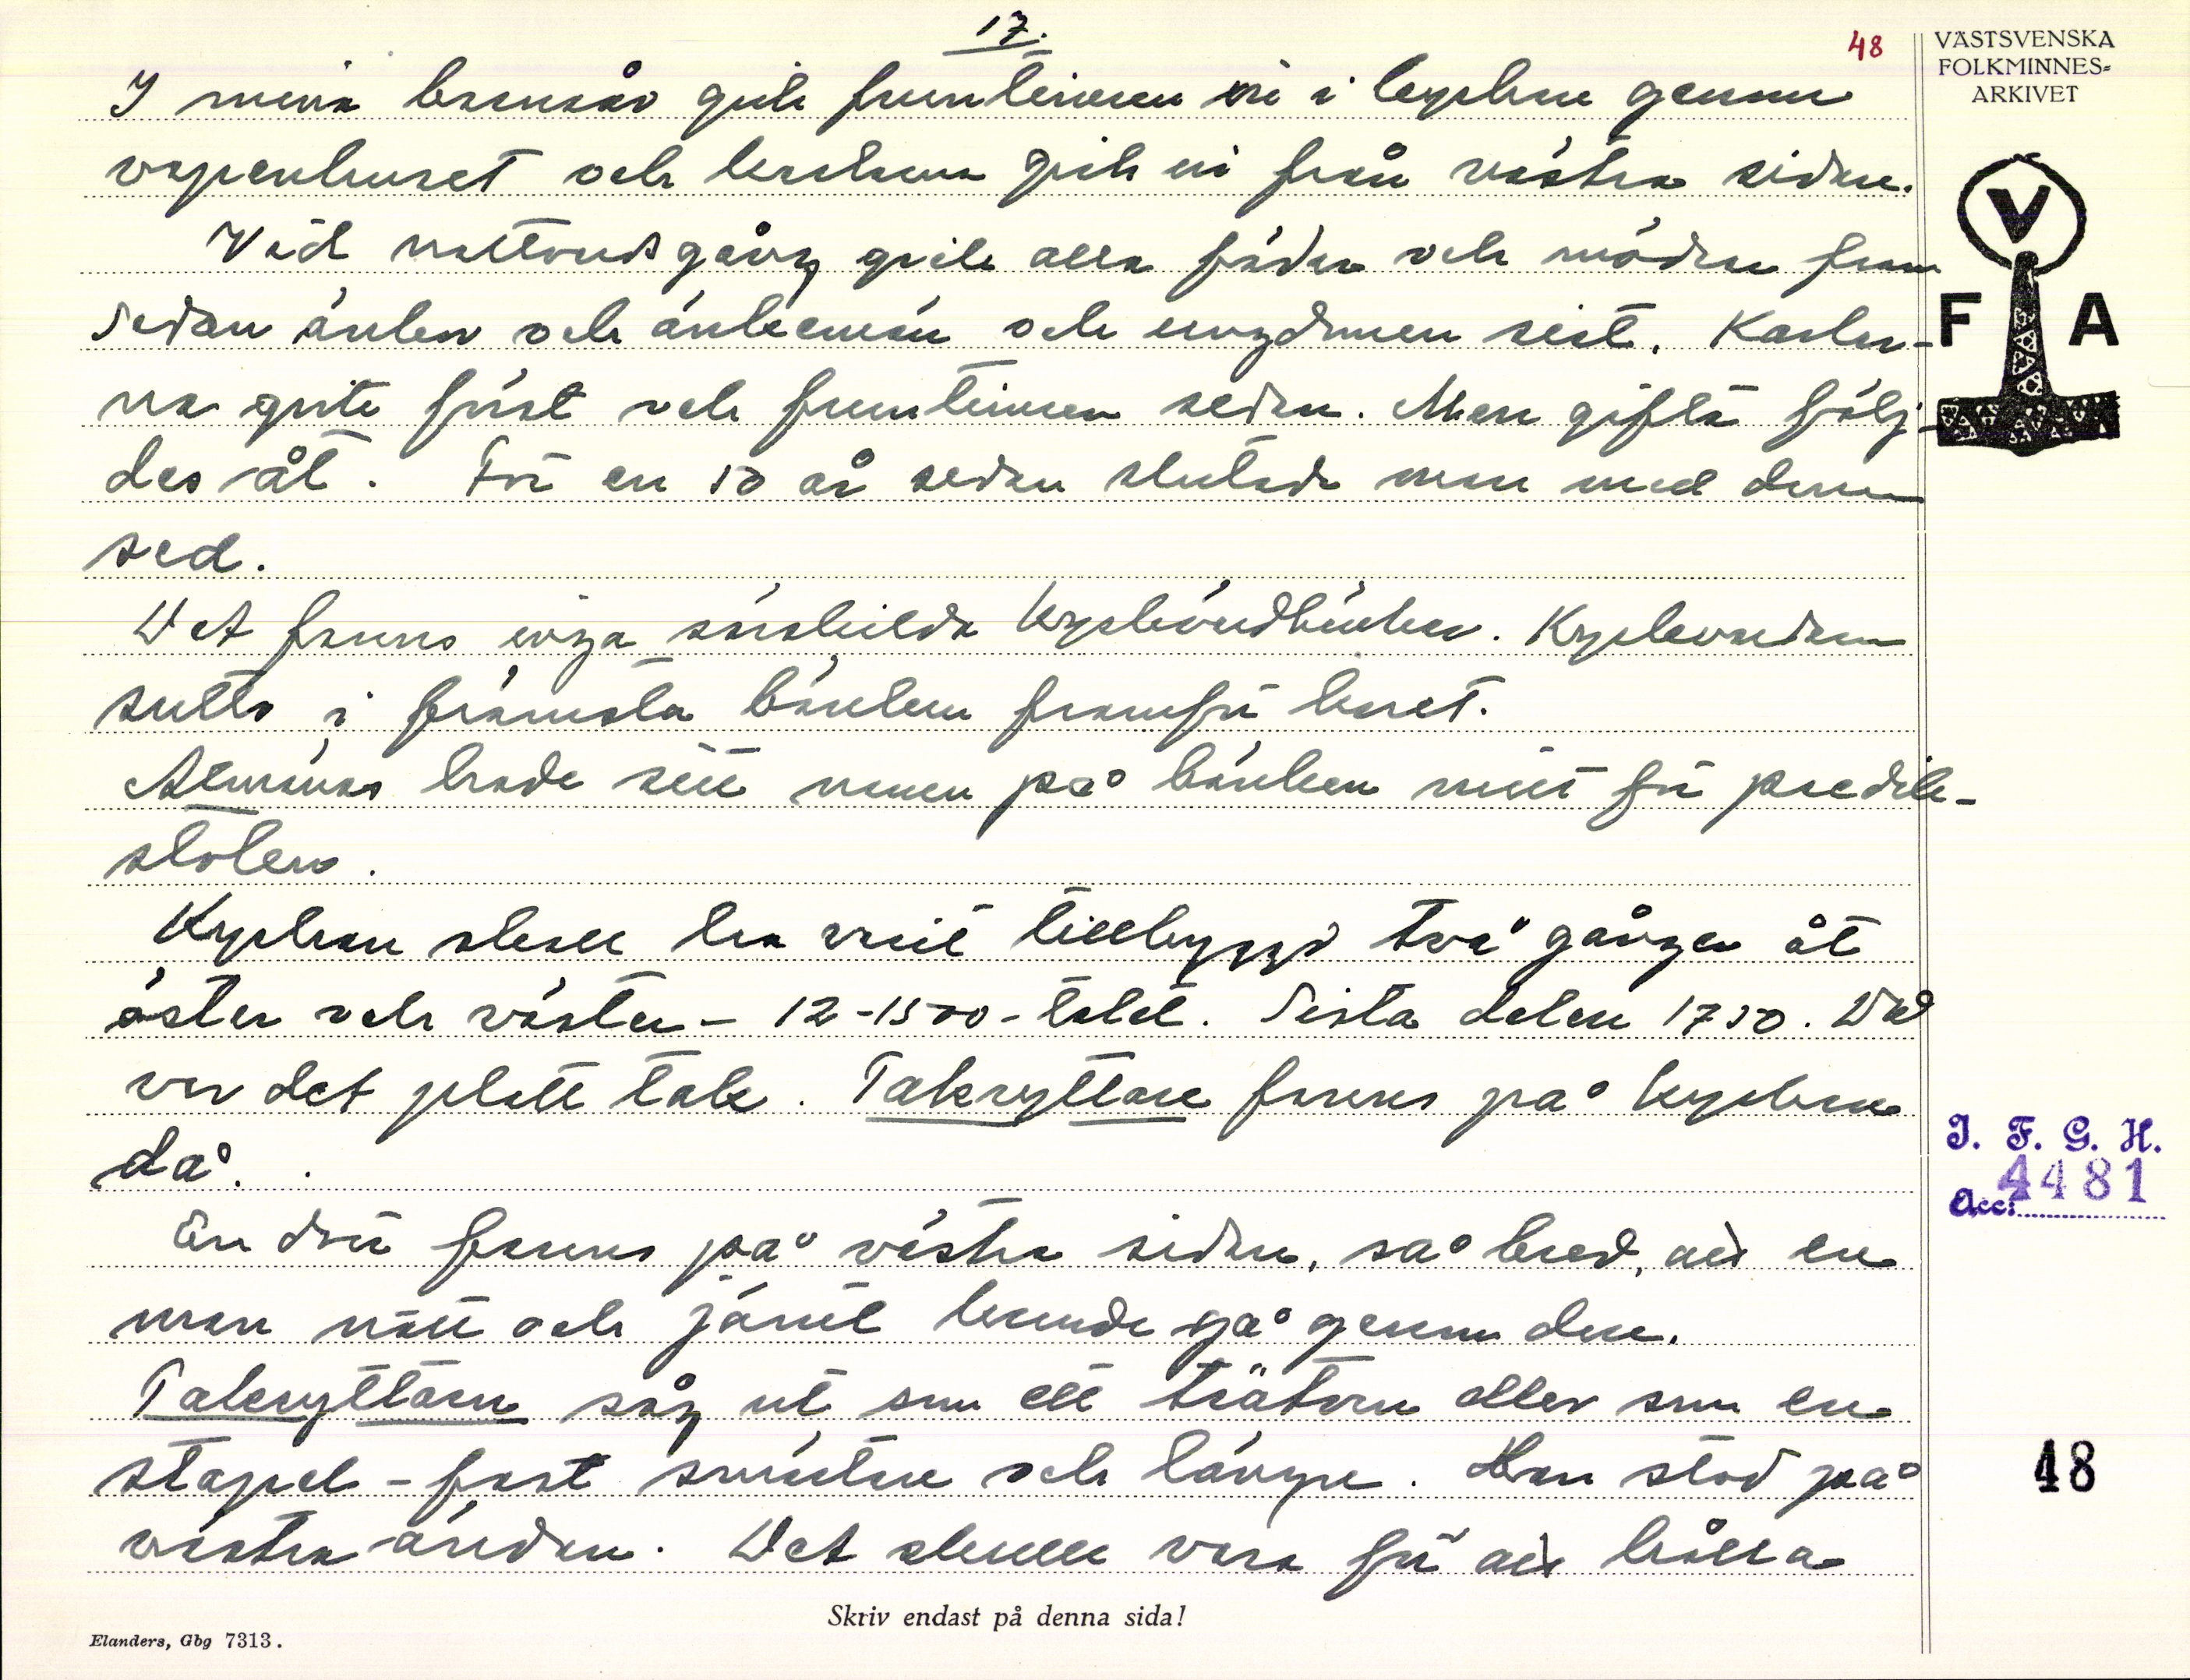 17.
48
VÄSTSVENSKA
FOLKMINNES-
ARKIVET
I mina barnaår gick fruntimmren in i kyrkan genom
vapenhuset och karlarna gick in från västra sidan.
Vid nattvardsgång gick alla fäder och mödrar fram
sedan änkor och änkemän och ungdomen sist. Karlar-
na gick först och fruntimmren sedan. Men gifta följ-
des åt. För en 50 år sedan slutade man med denna
sed.
Det fanns inga särskilda kyrkvärdbänkar. Kyrkvärdarna
sutto i främsta bänken framför koret.
Almänas hade sitt namn på bänken mitt för predik-
stolen.
Kyrkan skall ha varit tillbyggd två gånger åt
öster och väster - 12-1500-talet. Sista delen 1750. Då
var det platt tak. Takryttare fanns på kyrkan
då.
En dörr fanns på västra sidan, så bred, att en
man nätt och jämt kunde gå genom den.
Takryttaren såg ut som ett trätorn eller som en
stapel - fast smäckrare och längre. Den stod på
västra ändan. Det skulle vara för att hålla
V
F A
I. F. G. H.
Acc: 4481
48
Skriv endast på denna sida!
Elanders, Gbg 7313.